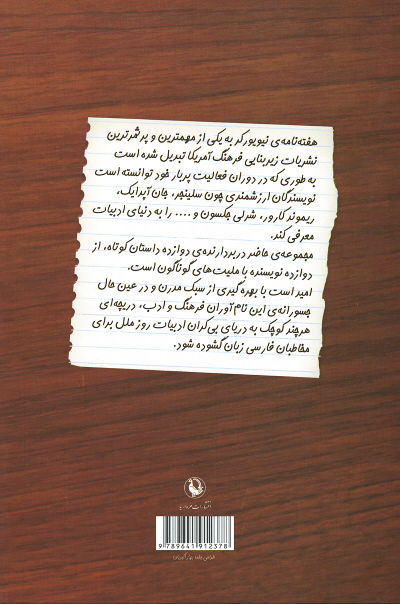 هفته‌نامه‌ی نیویورکر به یکی از مهمترین و پرثمرترین
نشریات زیربنایی فرهنگ آمریکا تبدیل شده است
به طوری که در دوران فعالیت پربار خود توانسته است
نویسندگان ارزشمندی چون سلینجر، جان آپدایک،
ریموند کارور، شرلی جکسون و .... را به دنیای ادبیات
معرفی کند.
مجموعه‌ی حاضر دربردارنده‌ی دوازده داستان کوتاه، از
دوازده نویسنده با ملیت‌های گوناگون است.
امید است با بهره‌گیری از سبک مدرن و در عین حال
جسورانه‌ی این نام‌آوران فرهنگ و ادب، دریچه‌ای
هرچند کوچک به دریای بی‌کران ادبیات روز ملل برای
مخاطبان فارسی زبان گشوده شود.
انتشارات مروارید
9 789641 912378